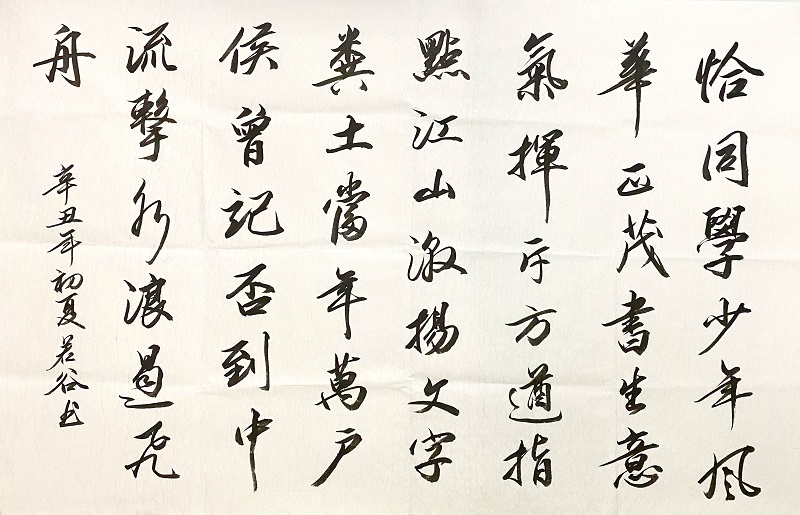 恰同學少年風
華正茂書生意
氣揮斥方遒指
點江山激揚文字
糞土當年萬戶
侯曾記否到中
流擊水浪遏飛
舟
辛丑年初夏若谷书